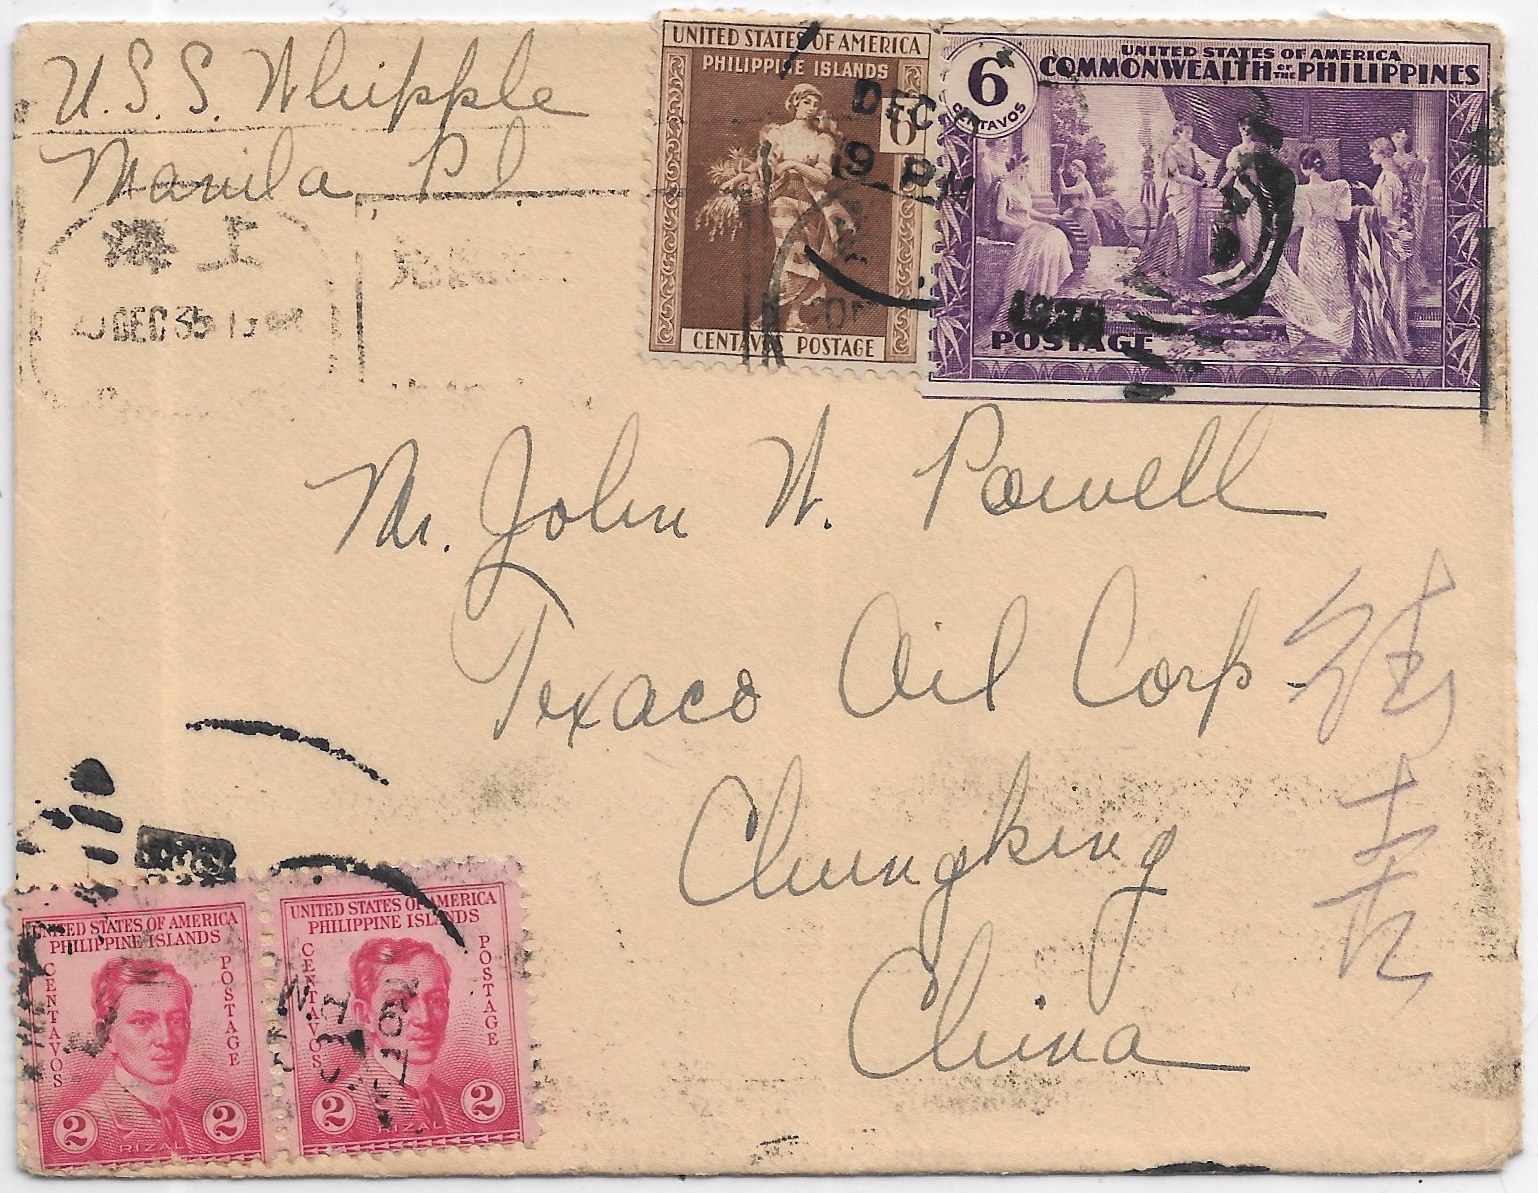 U.S.S. Whipple
Manila, P.I.
UNITED STATES OF AMERICA
PHILIPPINE ISLANDS
6
CENTAVOS POSTAGE
UNITED STATES OF AMERICA
COMMONWEALTH OF THE PHILIPPINES
6
CENTAVOS
POSTAGE
DEC
9 PM
DEC 35
Mr. John W. Powell
Texaco Oil Corp
Chungking
China
UNITED STATES OF AMERICA
PHILIPPINE ISLANDS
CENTAVOS
POSTAGE
2 2
RIZAL
UNITED STATES OF AMERICA
PHILIPPINE ISLANDS
CENTAVOS
POSTAGE
2 2
RIZAL